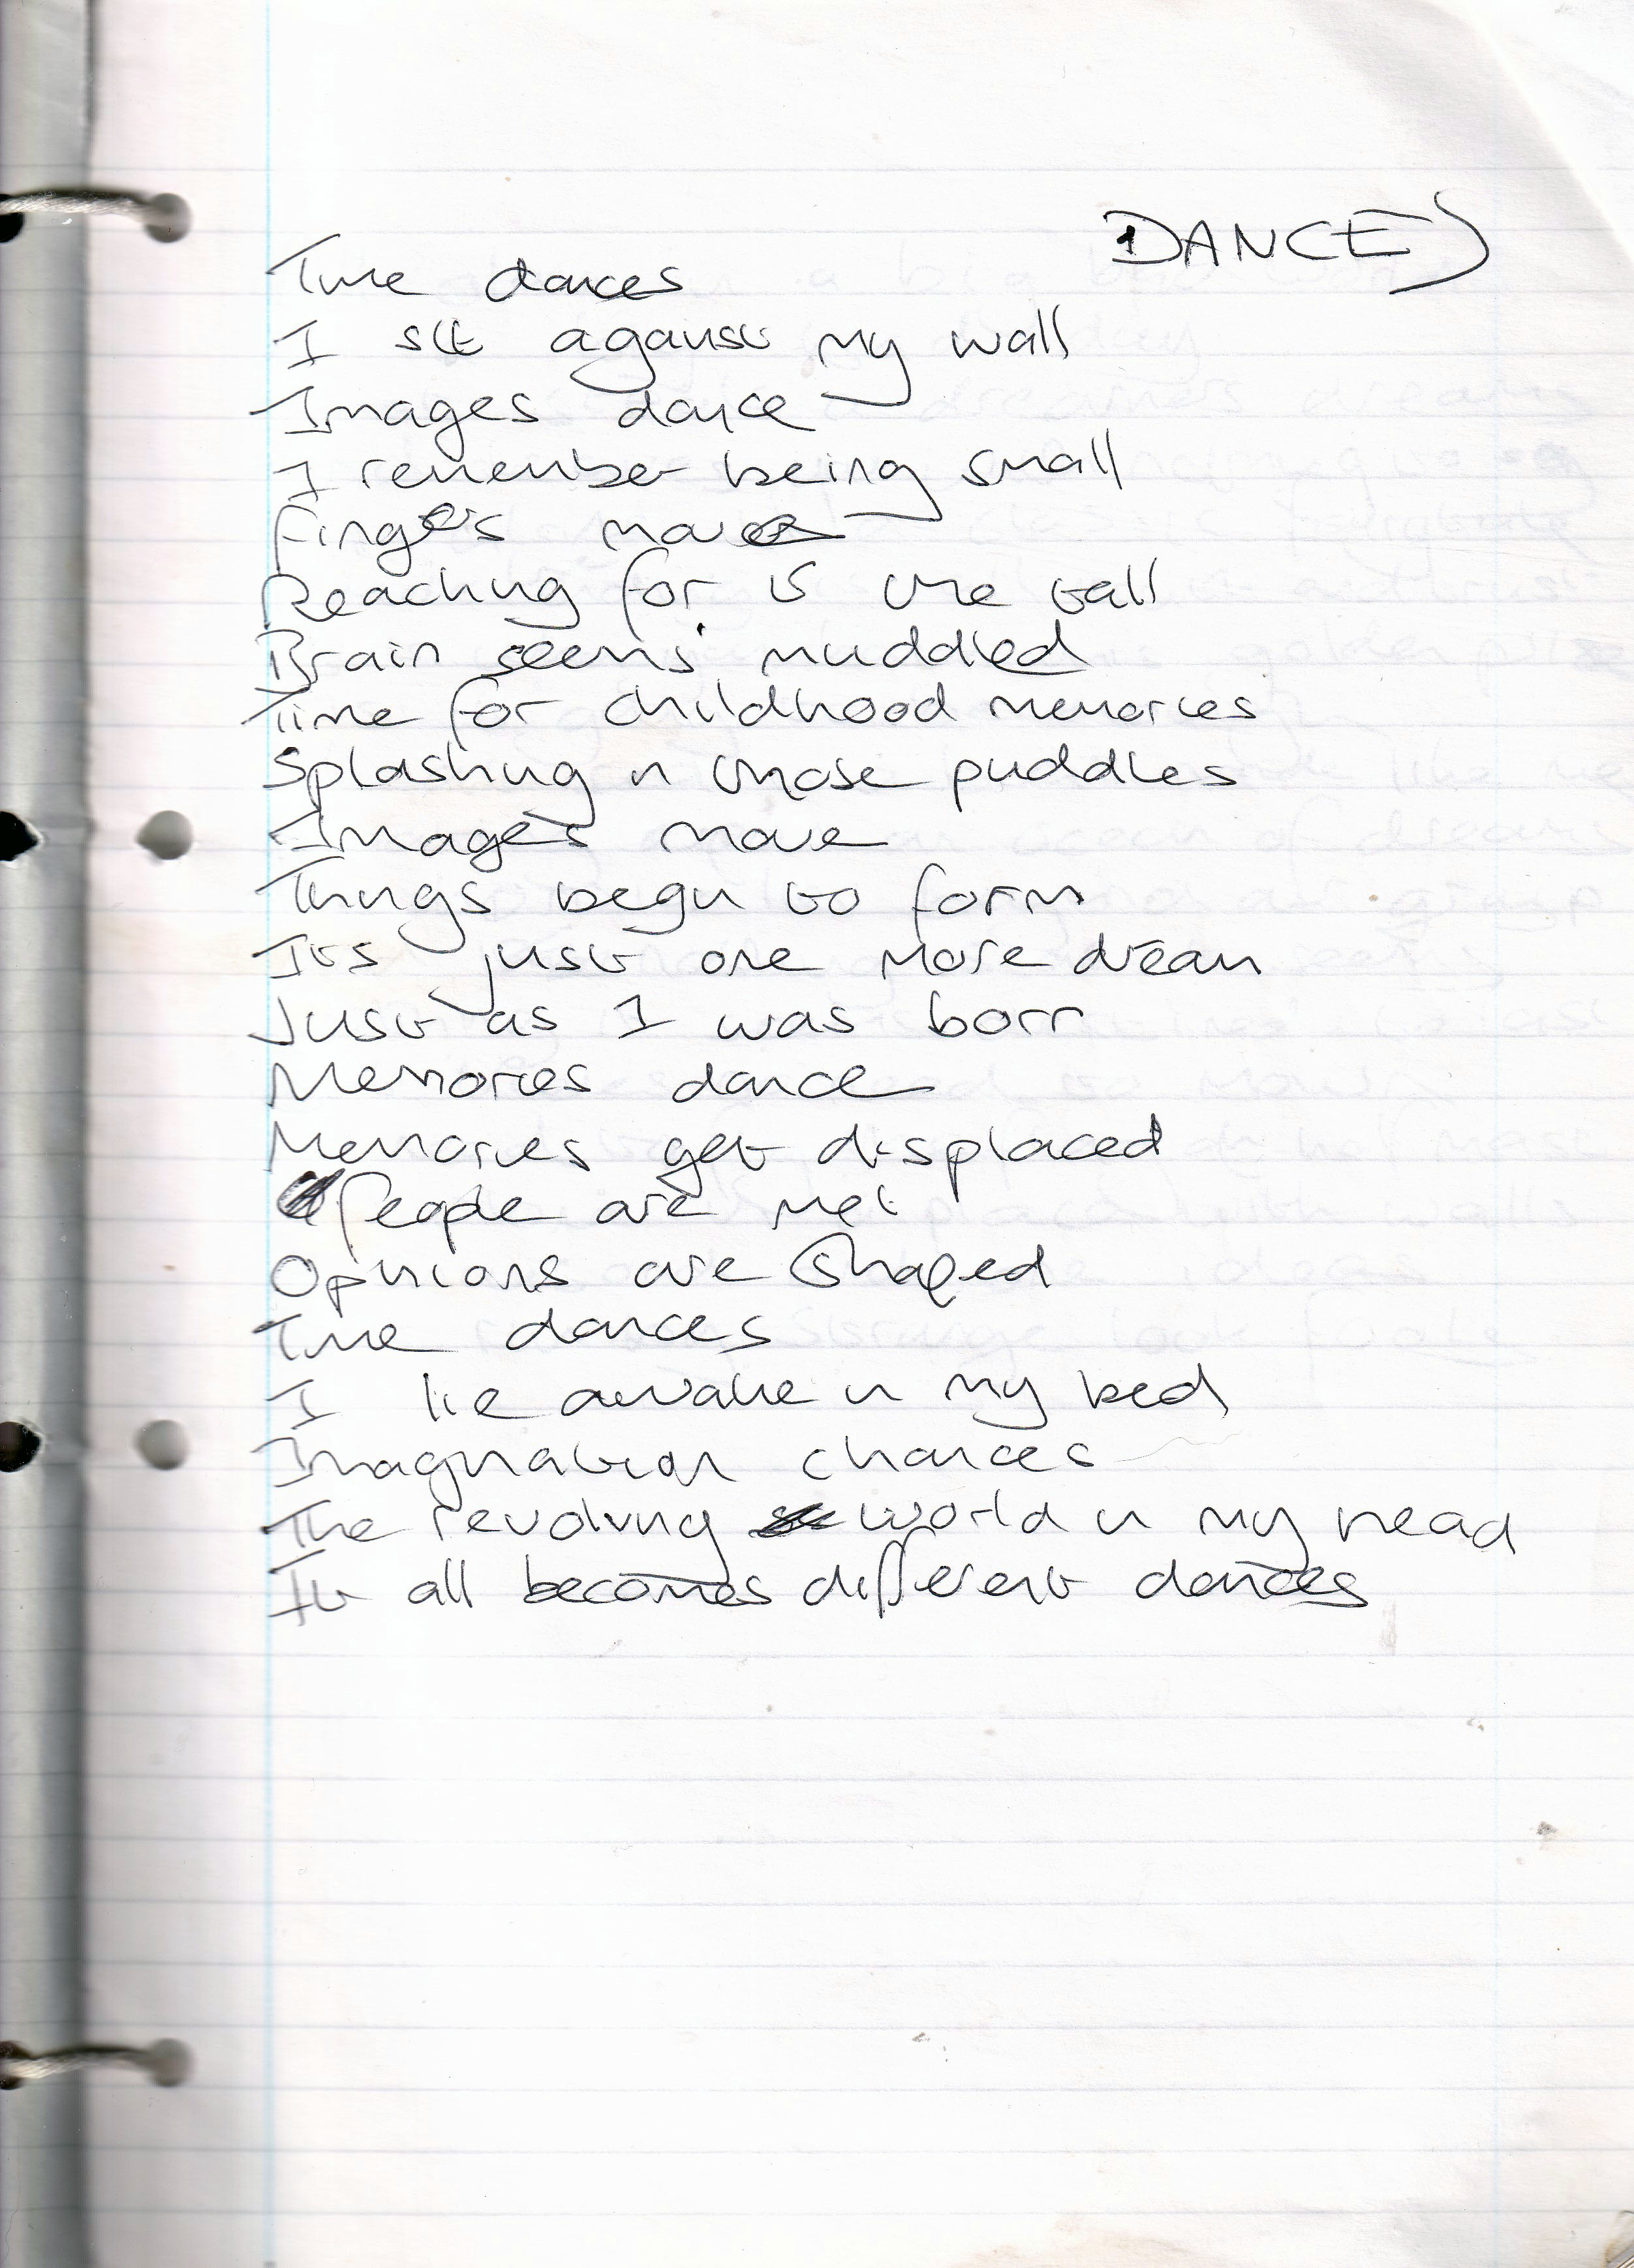 DANCE)
Time dances
I sit against my wall
Images dance
I remember being small
Fingers move
Reaching for is the ball
Brain seems muddled
Time for childhood memories
Splashing in those puddles
Images move
Things begin to form
Its just one more dream
Just as I was born
Memories dance
Memories get displaced
People are met
Opinions are shaped
Time dances
I lie awake in my bed
Imagination chances
The revolving world in my head
It all becomes different dances